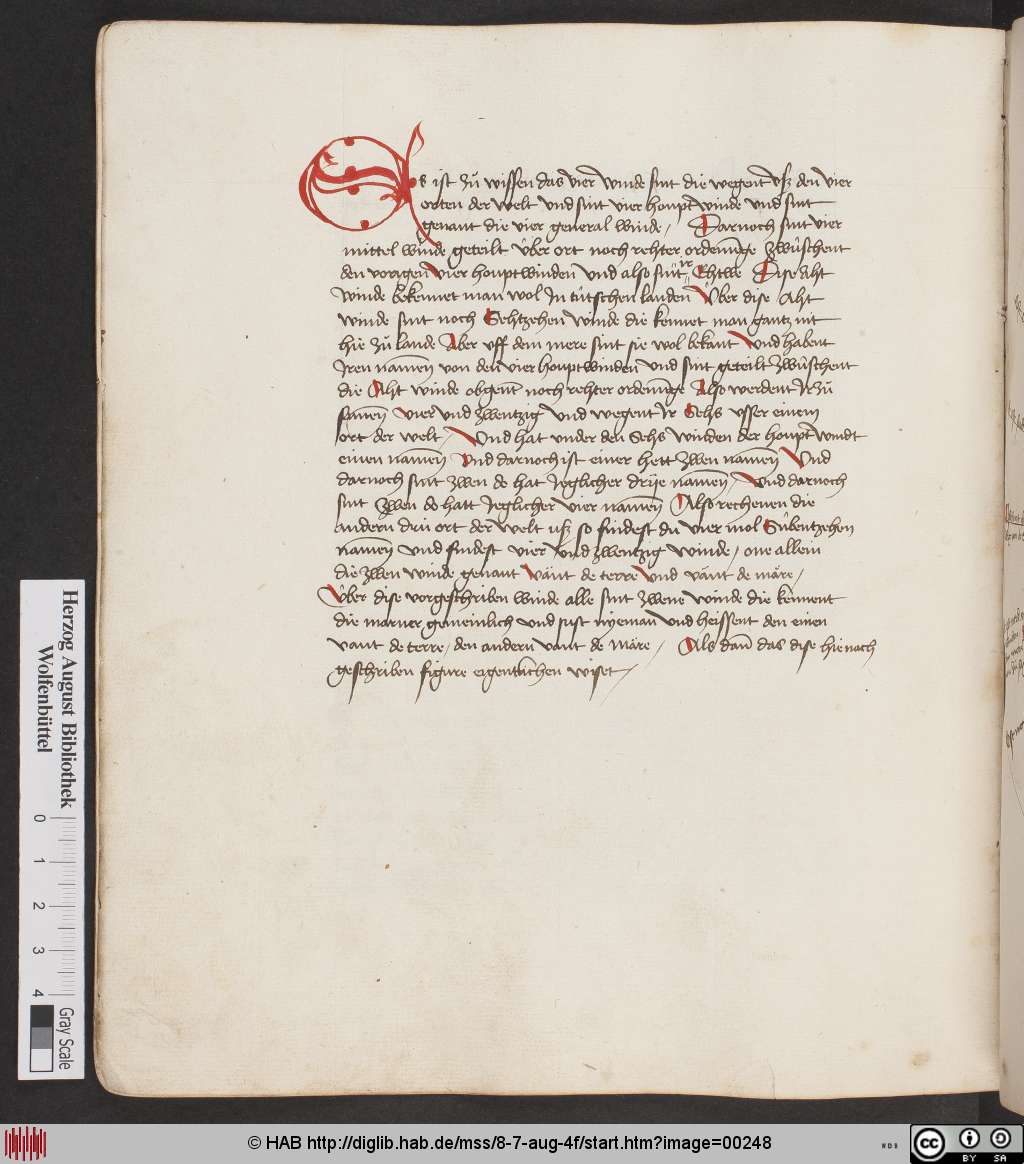 Es ist zů wissen das vier winde sint die wegent usz den vier
orten der welt Und sint vier houpt winde Und sint
genant die vier general winde / Darnoch sint vier
mittel winde geteilt Über ort noch rehter ordenūge zwüschent
den vorigen Vier houptwinden Und also sint ir Ehtwe Dise Aht
Winde bekennet man wol In tütschen landen Über dise Aht
winde sint noch Sehtzehen winde die kennet man gantz nit
hie zů lande Aber uff dem mere sint sie wol bekant Und habent
Iren nāmen von den vier houptwinden Und sint geteilt zwüschent
die Aht winde obgent noch rehter ordenūge Also werdent Ir zů
samen vier und zwentzig Und wegent Ir Sehs usser einem
ort der welt / Und hat under den Sehs winden der houpt windt
einen namen Und darnoch ist einer hett zwen namen Und
darnoch sint zwen de hat Ieglicher drije namen Und darnoch
sint zwen de hatt Ieglicher vier namen Also rechenen die
andern drü ort der welt usz so findest du vier mol Sübentzehen
namen Und findest vier und zwentzig winde / one allein
die zwen winde genant vant de terre Und vant de märe /
Über dise vorgeschriben winde alle sint zwene winde die kennent
die marner gemeinlich und sust nyeman Und heissent den einen
vant de terre / den andern vant de märe / Als dañ das dise hie nach
geschriben figure eigentlichen wiset
Herzog August Bibliothek
Wolfenbüttel
0 1 2 3 4
Gray Scale
© HAB http://diglib.hab.de/mss/8-7-aug-4f/start.htm?image=00248
WDB
cc
BY SA